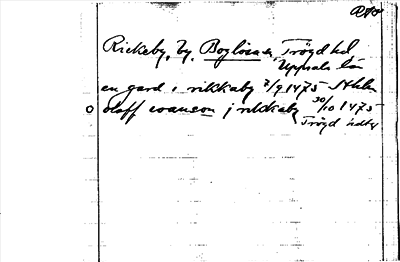 Rickeby, by, Boglösa sn, Trögd hd
Uppsala län
en gard i rikkaby 2/9 1475 Sthlm
oloff swanson j rikkaby 30/10 1475
Trögd